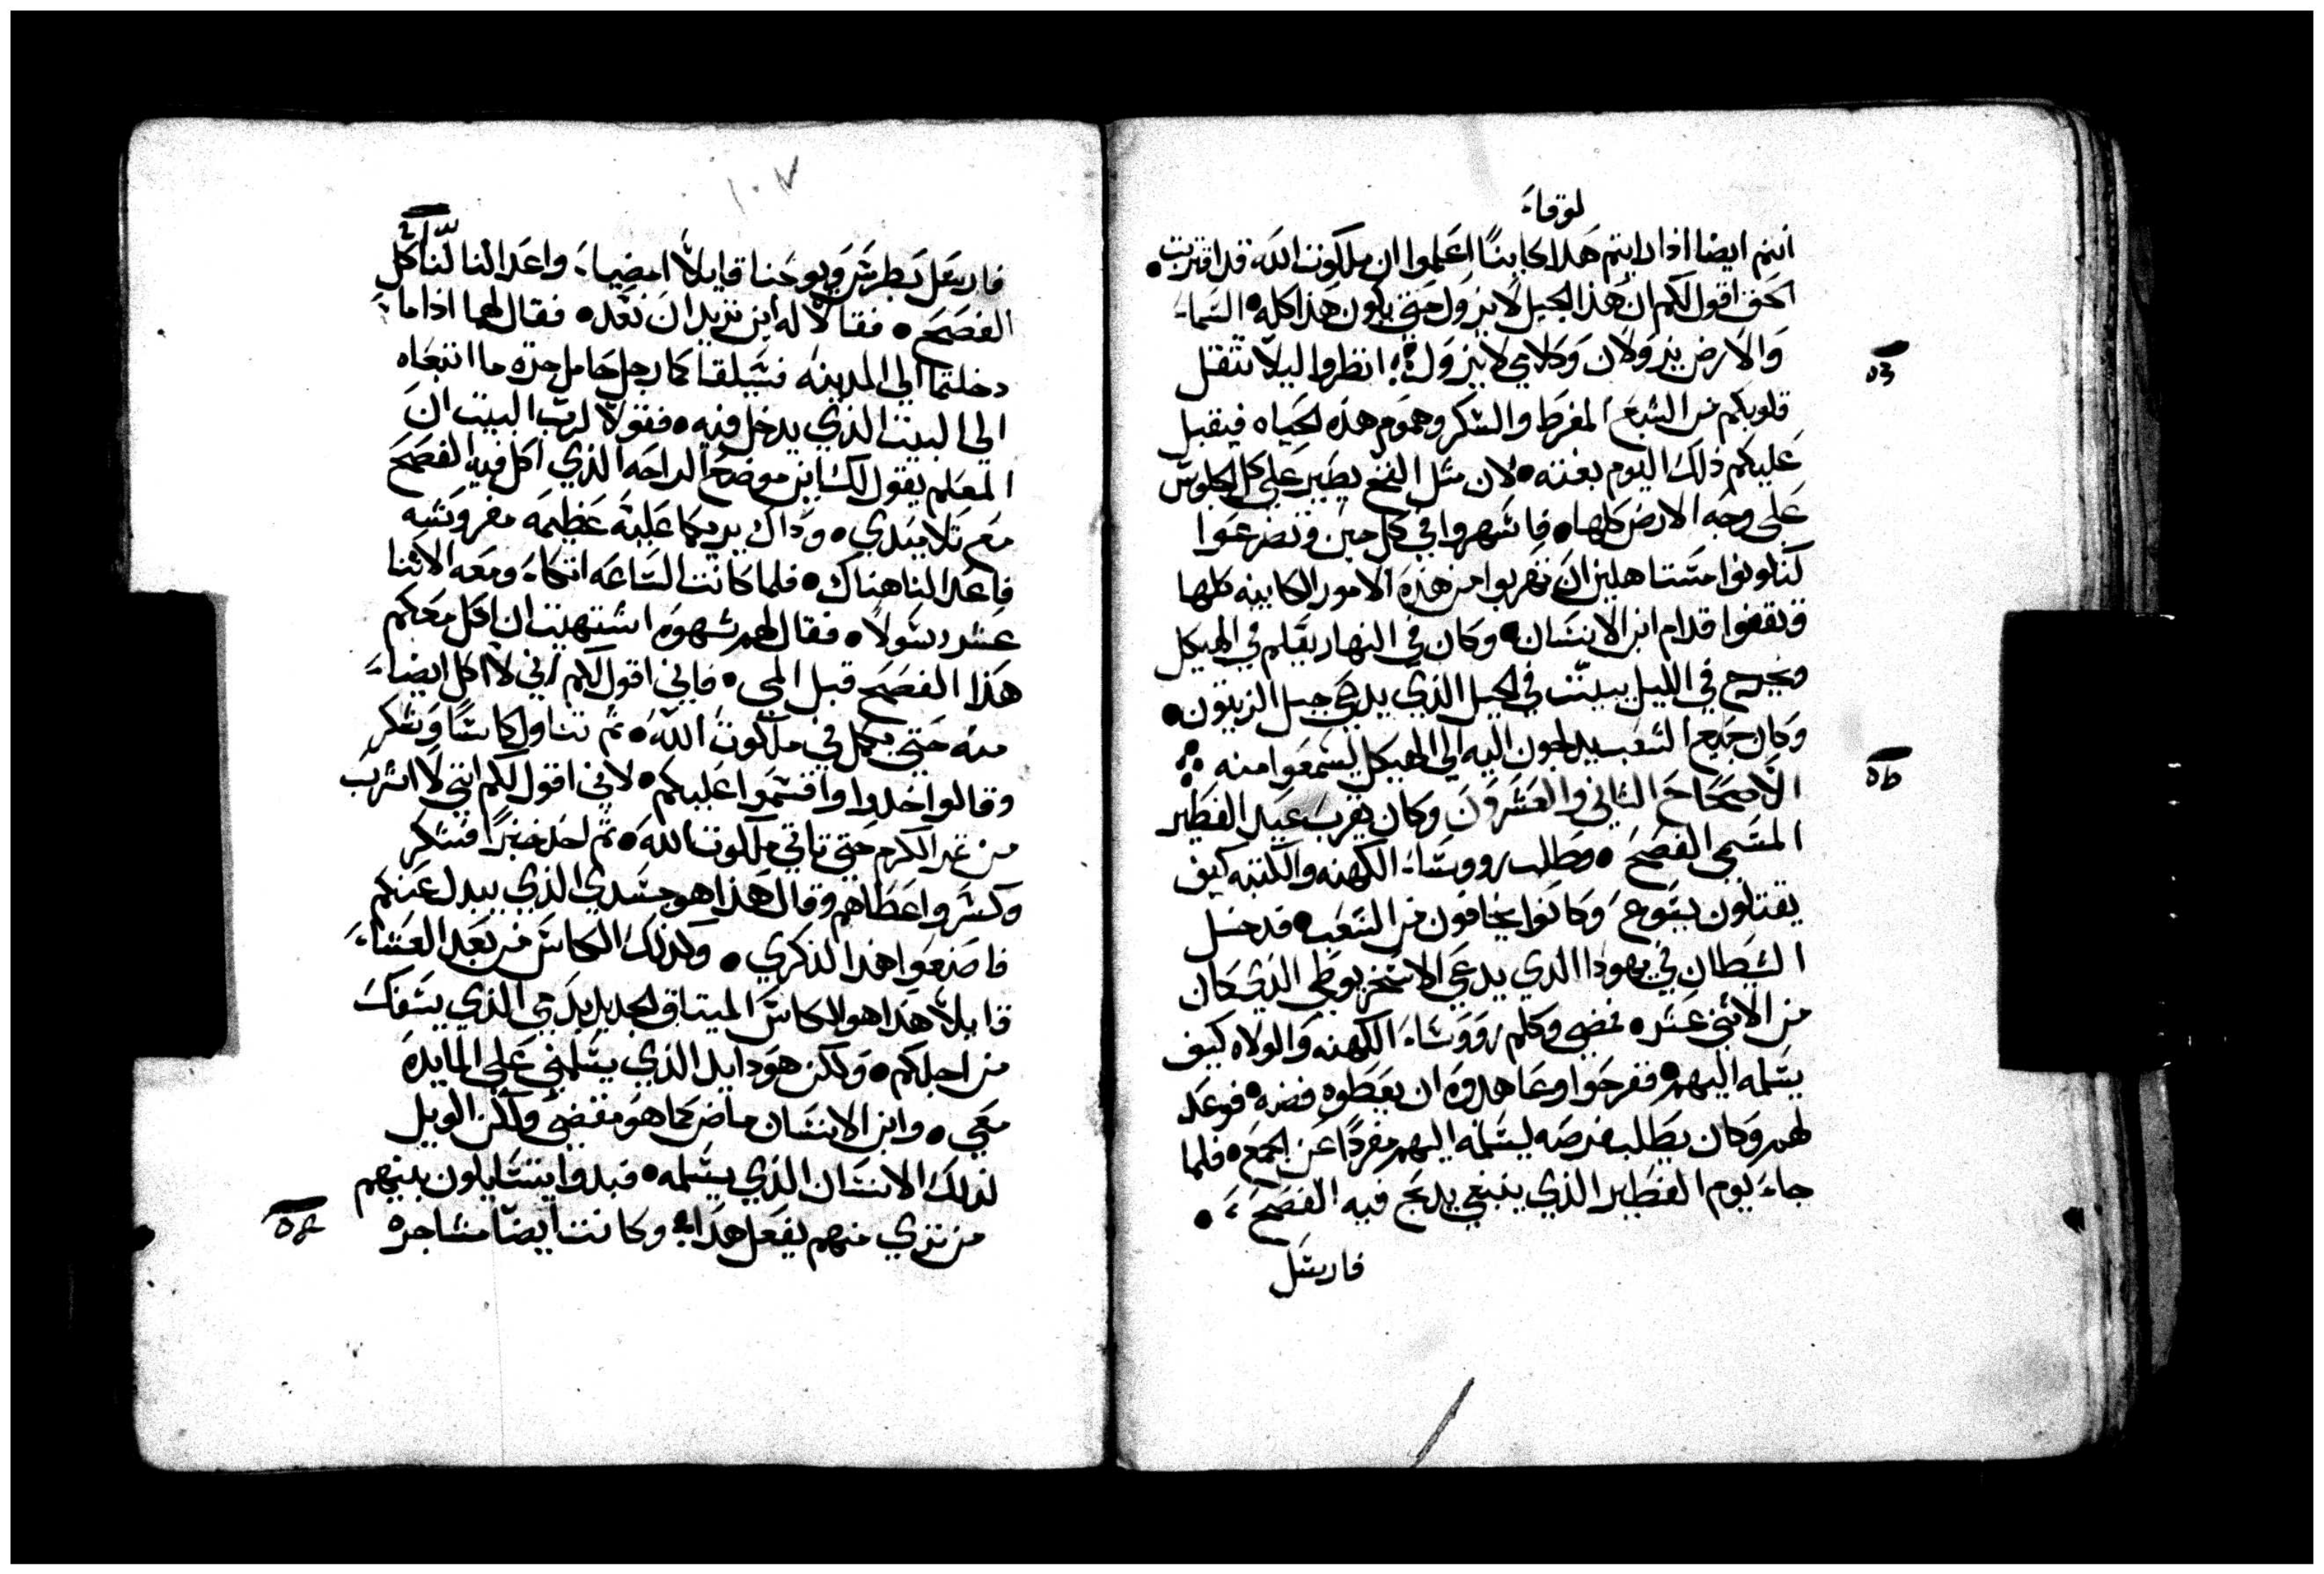 لوقاء
انتم ايضا اذا رايتم هذا كاينًا اعلموا ان ملكوت الله قد اقتربت
الحق اقول لكم ان هذا الجيل لا يزول حتى يكون هذا كله السماء
والارض يزولان وكلامي لا يزول انظروا ليلا تثقل
قلوبكم من الشبع المفرط والسكر وهموم هذه الحياه فيقبل
عليكم ذلك اليوم بغتته لان مثل الفخ يطير على كل الجلوس
على وجه الارض كلها فاسهروا في كل حين وتضرعوا
لتكونوا مستاهلين ان تهربوا من هذه الامور الكاينه كلها
وتقفوا قدام ابن الانسان وكان في النهار يعلم في الهيكل
ويخرج في الليل يبيت في الجبل الذي يدعى جبل الزيتون
وكان جميع الشعب يدلجون اليه الى الهيكل ليسمعوا منه
الاصحاح الثاني والعشرون وكان يقرب عيد الفطير
المسمى الفصح وطلب رووساء الكهنه والكتبه كيف
يقتلون يسوع وكانوا يخافون من الشعب فدخل
الشيطان في يهودا الذي يدعى الاسخريوطي الذي كان
من الاثني عشر فمضى وكلم رووساء الكهنه والولاه كيف
يسلمه اليهم ففرحوا وعاهدوه ان يعطوه فضه فوعد
لهم وكان يطلب فرصه ليسلمه اليهم مفردًا عن الجمع فلما
جاء يوم الفطير الذي ينبغي يذبح فيه الفصح
فارسل
١٠٧
فارسل بطرس ويوحنا قايلاً امضيا واعدا لنا لنأكل
الفصح فقالا له اين تريد ان نعد فقال لهما اذا ما
دخلتما الى المدينه فسيلقاكما رجل حامل جره ما اتبعاه
الى البيت الذي يدخل فيه فقولا لرب البيت ان
المعلم يقول لك اين موضع الراحه الذي اكل فيه الفصح
مع تلاميذي وذاك يريكما عليه عظيمه مفروشه
فاعدا لنا هناك فلما كانت الساعه اتكاء ومعه الاثنا
عشر رسولاً فقال لهم شهوه اشتهيت ان اكل معكم
هذا الفصح قبل المي فاني اقول لكم اني لا اكل ايضاء
منه حتى يكمل في ملكوت الله ثم تناول كاسًا وشكر
وقالوا خذوا واقسموا عليكم لاني اقول لكم انني لا اشرب
من عصير الكرم حتى تاتي ملكوت الله ثم اخذ خبزًا فشكر
وكسر واعطاهم وقال هذا هو جسدي الذي يبدل عنكم
فاصنعوا هذا لذكري وكذلك الكاس من بعد العشاء
قايلاً هذا هو الكاس الميتاق الجديد بدمي الذي يسفك
من اجلكم ولكن هودا يد الذي يسلمني على المايده
معي وابن الانسان ماض كما هو مقضى ولكن الويل
لذلك الانسان الذي يسلمه فبدوا يتسايلون بينهم
من تري منهم يفعل هذا وكانت ايضًا مشاجره